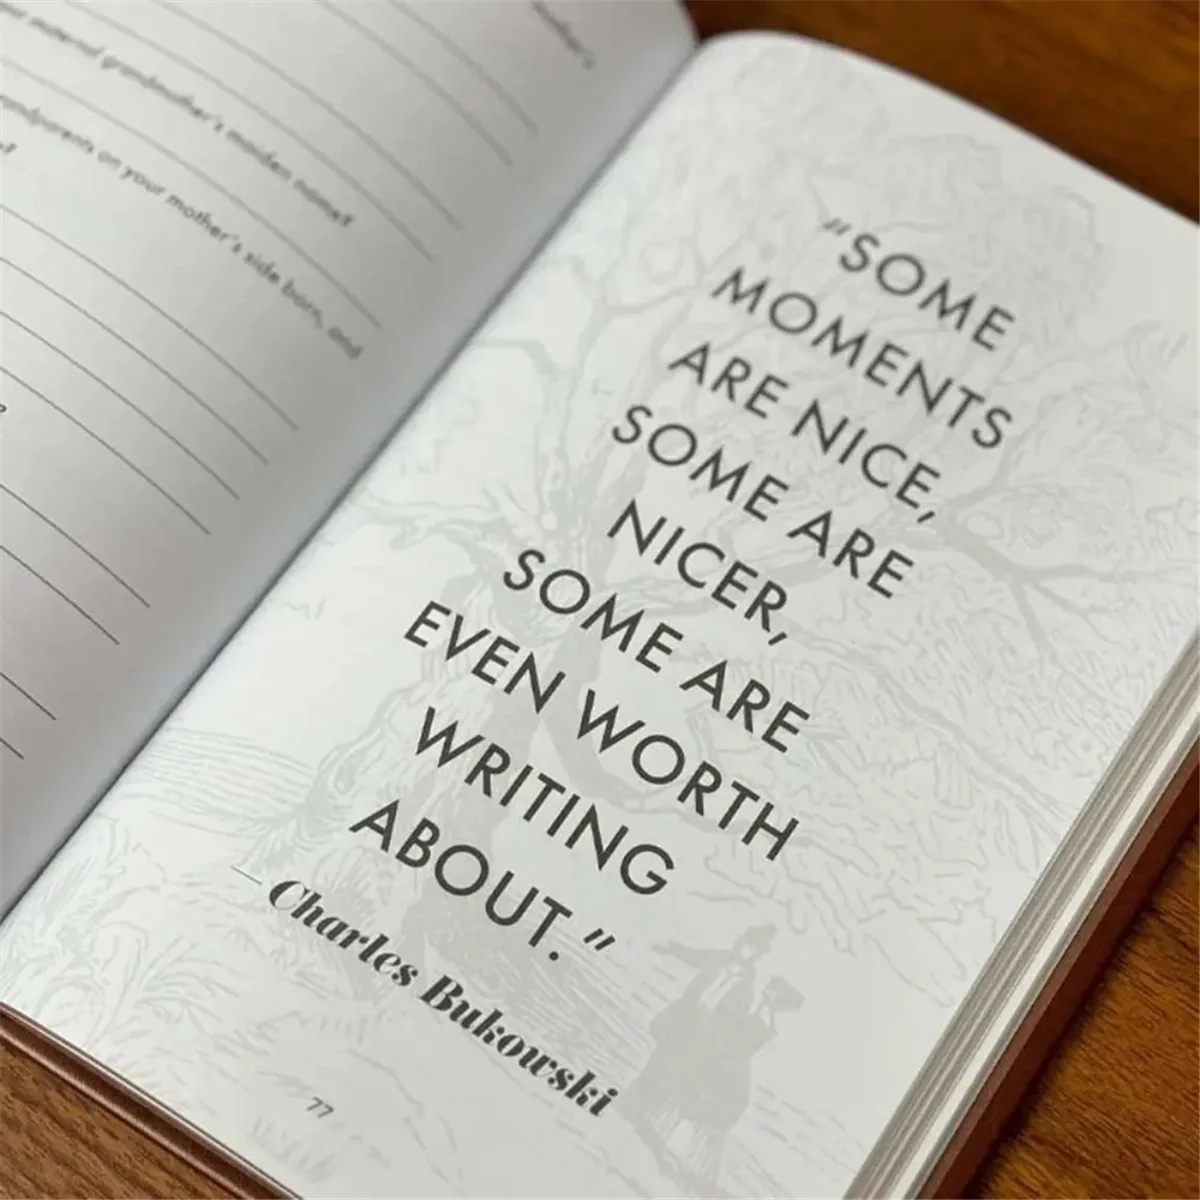 mother's
material grandmother's maiden name?
grandparents on your mother's side born, and
"SOME
MOMENTS
ARE NICE,
SOME ARE
NICER,
SOME ARE
EVEN WORTH
WRITING
ABOUT."
— Charles Bukowski
77